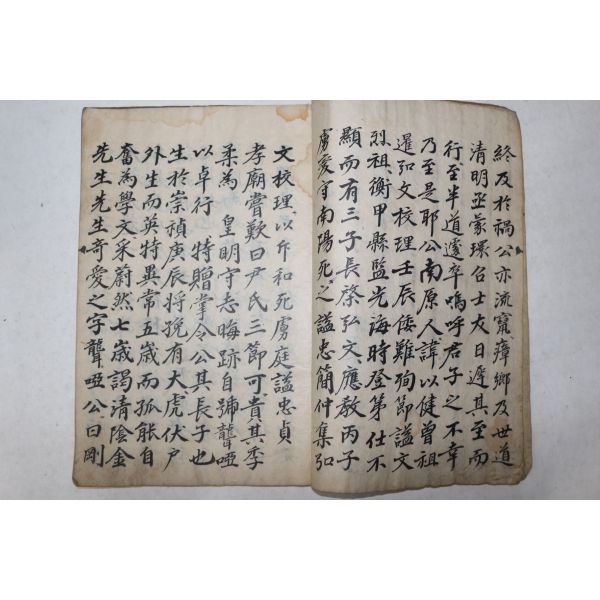 終及於禍公亦流竄瘴鄕及世道
清明丞蒙環召士友日遲其至而
行至半道遽卒嗚呼君子之不幸
乃至是耶公南原人諱以健曾祖
暹弘文校理壬辰倭難殉節謚文
烈祖衡甲縣監光海時登第仕不
顯而有三子長棨弘文應敎丙子
虜變守南陽死之謚忠簡仲集弘
文校理以斥和死虜庭謚忠貞
孝廟嘗歎曰尹氏三節可貴其季
柔爲 皇明守志晦跡自號聾啞
以卓行 特贈掌令公其長子也
生於崇禎庚辰將挽有大虎伏戶
外生而英特異常五歲而孤能自
奮爲學文采蔚然七歲謁清陰金
先生先生奇愛之字聾啞公曰剛